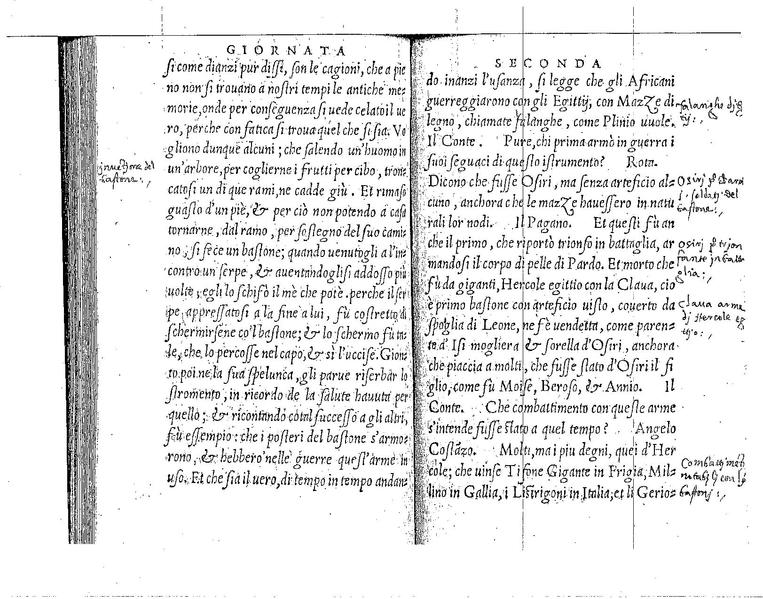 GIORNATA
si come dianzi pur dissi, son le cagioni, che a pie
no non si trouano a nostri tempi le antiche me-
morie, onde per conseguenza si uede celato il ue
ro, perche con fatica si troua quel che si sia. Vo
gliono dunque alcuni; che salendo un'huomo in
un'arbore, per coglierne i frutti per cibo, tron-
catosi un di que rami, ne cadde giù. Et rimaso
guasto d'un piè, & per ciò non potendo a casa
tornarne, dal ramo, per sostegno del suo cami
no, si fece un bastone; quando uenutogli a l'in-
contro un serpe, & auentandoglisi addosso più
uolte, egli lo schifò il me che potè. perche il ser
pe, appressatosi a la fine a lui, fù costretto di
schermirsene co'l bastone; & lo schermo fù ta-
le, che lo percosse nel capo, & sì l'uccise. Giun-
to poi ne la sua spelunca, gli parue riserbar lo
stromento, in ricordo de la salute hauuta per
quello; & ricontando cotal successo a gli altri,
fù essempio: che i posteri del bastone s'armo-
rono, & hebbero nelle guerre quest'arme in
uso. Et che sia il uero, di tempo in tempo andan-
bastone:,
SECONDA
do inanzi l'usanza, si legge che gli Africani
guerreggiarono con gli Egittij, con MazZe di
legno, chiamate falanghe, come Plinio uuole.
Il Conte. Pure, chi prima armò in guerra i
suoi seguaci di questo istrumento? Rota.
Dicono che fusse Osiri, ma senza arteficio al-
cuno, anchora che le mazZe hauessero in natu
rali lor nodi. Il Pagano. Et questi fù an
che il primo, che riportò trionfo in battaglia, ar
mandosi il corpo di pelle di Pardo. Et morto che
fù da giganti, Hercole egittio con la Claua, cio
è primo bastone con arteficio uisto, couerto da
spoglia di Leone, ne fè uendetta, come paren-
te d'Isi mogliera & sorella d'Osiri, anchora
che piaccia a molti, che fusse stato d'Osiri il fi
glio, come fù Moise, Beroso, & Annio. Il
Conte. Che combattimento con queste arme
s'intende fusse stato a quel tempo? Angelo
Costazo. Molti, ma i piu degni, quei d'Her
cole; che uinse Tifone Gigante in Frigia, Mil-
lino in Gallia, i Listrigoni in Italia; et li Gerio-
Claua arma
di Hercole
bastoni:,